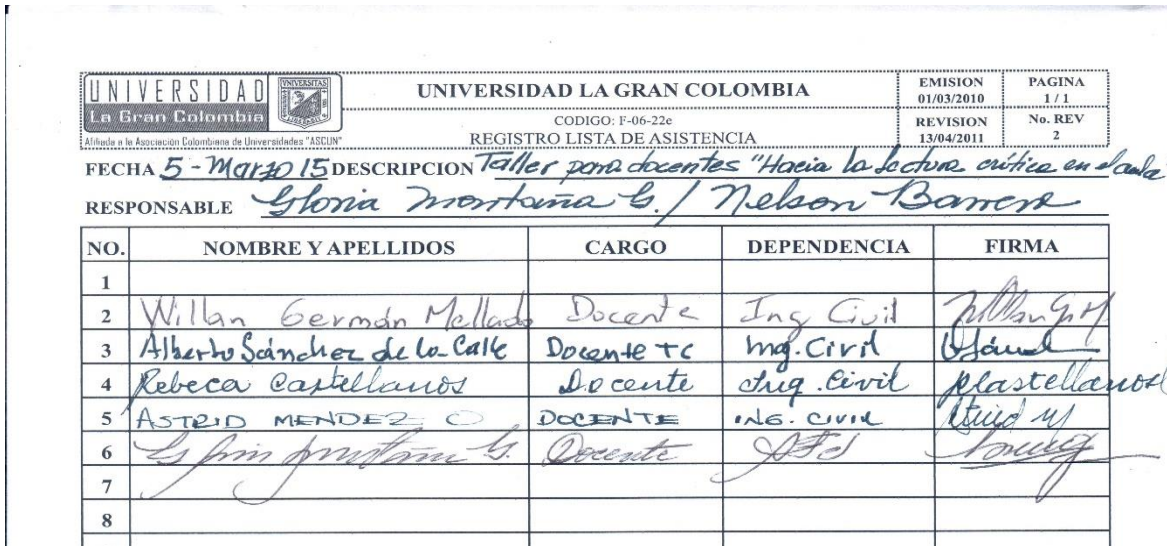 UNIVERSIDAD
La Gran Colombia
VNIVERSITAS
Afiliada a la Asociación Colombiana de Universidades "ASCUN"
UNIVERSIDAD LA GRAN COLOMBIA
CODIGO: F-06-22e
REGISTRO LISTA DE ASISTENCIA
EMISION
01/03/2010
PAGINA
1 / 1
REVISION
13/04/2011
No. REV
2
FECHA 5 - Marzo 15 DESCRIPCION Taller para docentes "Hacia la lectura crítica en el aula"
RESPONSABLE Gloria Montaña G. / Nelson Barrera
NO. NOMBRE Y APELLIDOS CARGO DEPENDENCIA FIRMA
1
2 Willan Germán Mellado Docente Ing Civil
3 Alberto Sánchez de la Calle Docente TC Ing. Civil
4 Rebeca Castellanos Docente Ing. Civil RCastellanos
5 ASTRID MENDEZ O DOCENTE ING. CIVIL Astrid M
6 Gloria Montaña G. Docente
7
8